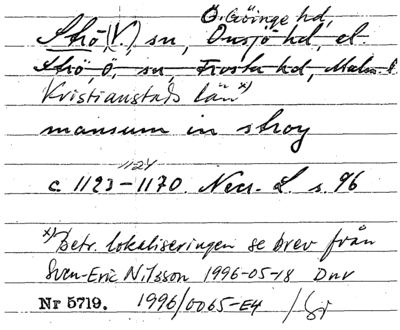 Ö. Göinge hd,
Strö (V.), sn, Onsjö hd, el.
Strö, Ö, sn, Frosta hd, Malm. l
Kristianstads län x)
mansum in stroy
1124
c. 1123-1170. Necr. L. s. 96
x) betr. lokaliseringen se brev från
Sven-Eric Nilsson 1996-05-18 Dnr
Nr 5719. 1996/0065-E4 /